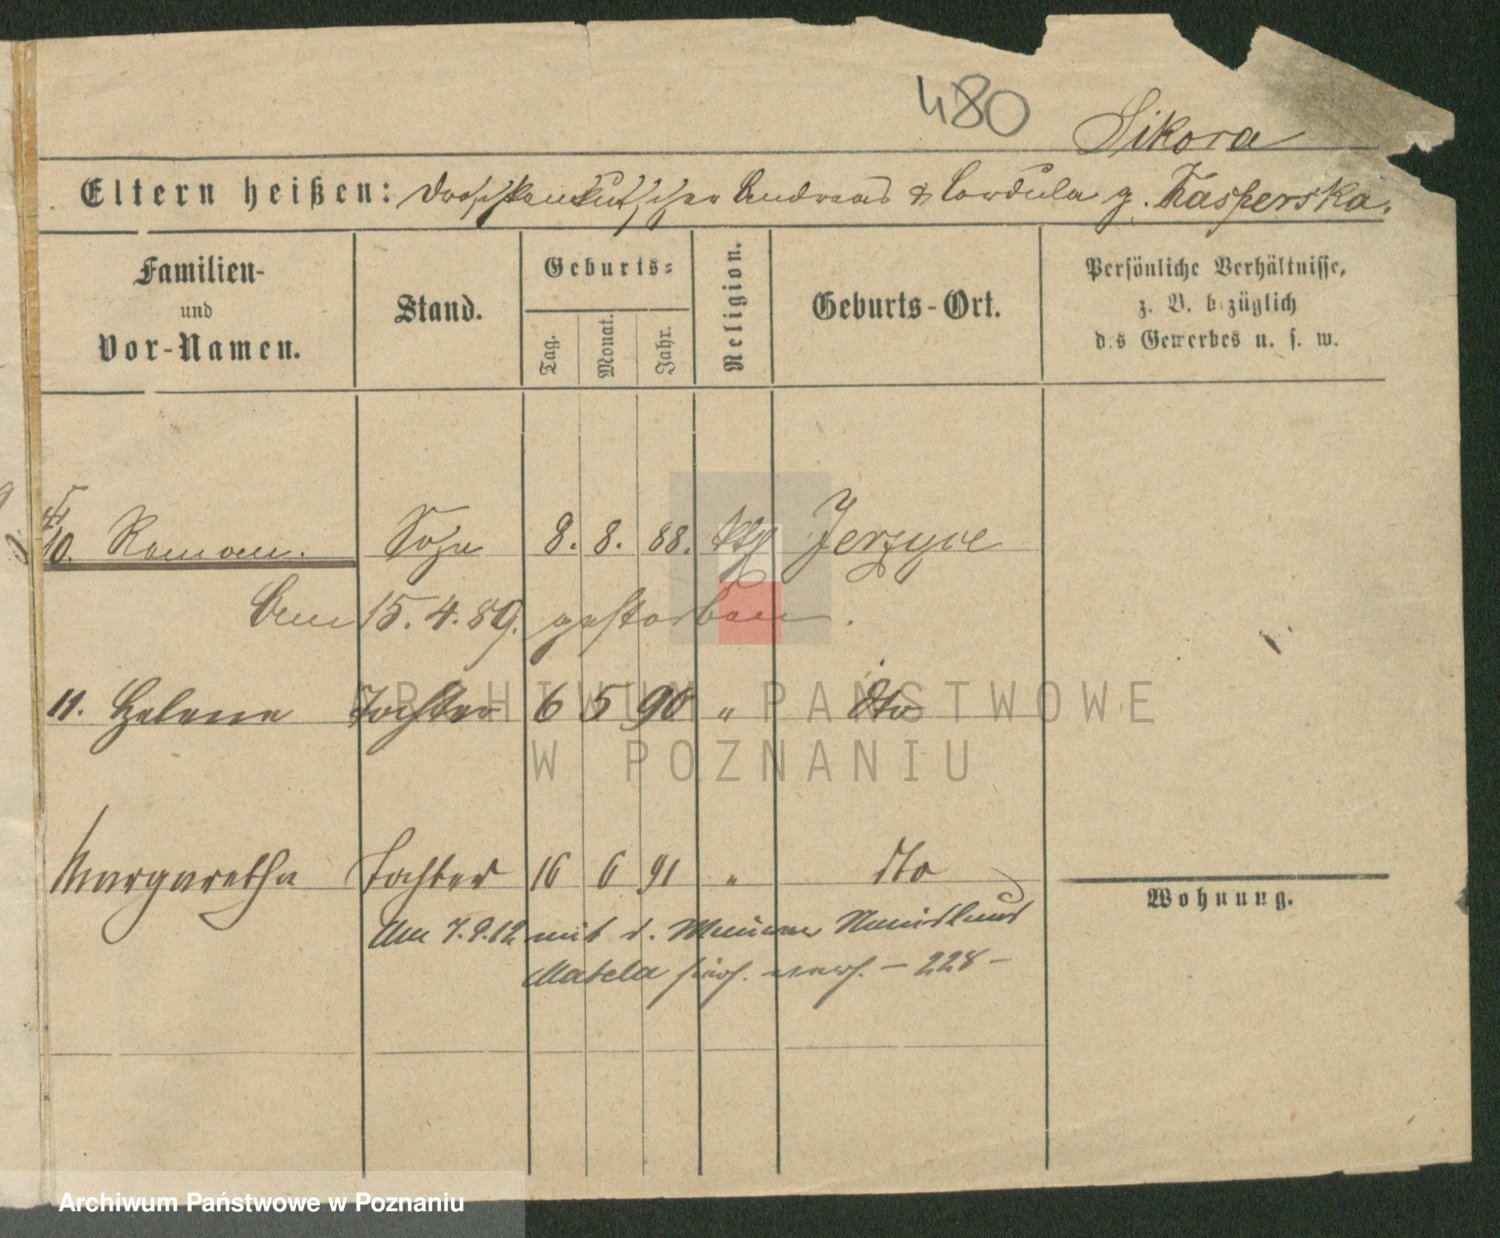 480
Sikora
Eltern heißen: Droschkenkutscher Andreas & Cordula g. Kasperska.
Familien-
und
Vor-Namen.
Stand.
Geburts-
Tag.
Monat.
Jahr.
Religion.
Geburts-Ort.
Persönliche Verhältnisse,
z. B. bezüglich
des Gewerbes u. s. w.
10. Roman. Sohn 8. 8. 88. kth Jerzyce
Am 15. 4. 89. gestorben.
11. Helene Tochter 6 5 90 " dto
ARCHIWUM PAŃSTWOWE
W POZNANIU
Margaretha Tochter 16 6 91 " dto
Wohnung.
Am 7.9.12 mit d. Maurer
Matela - 228 -
Archiwum Państwowe w Poznaniu